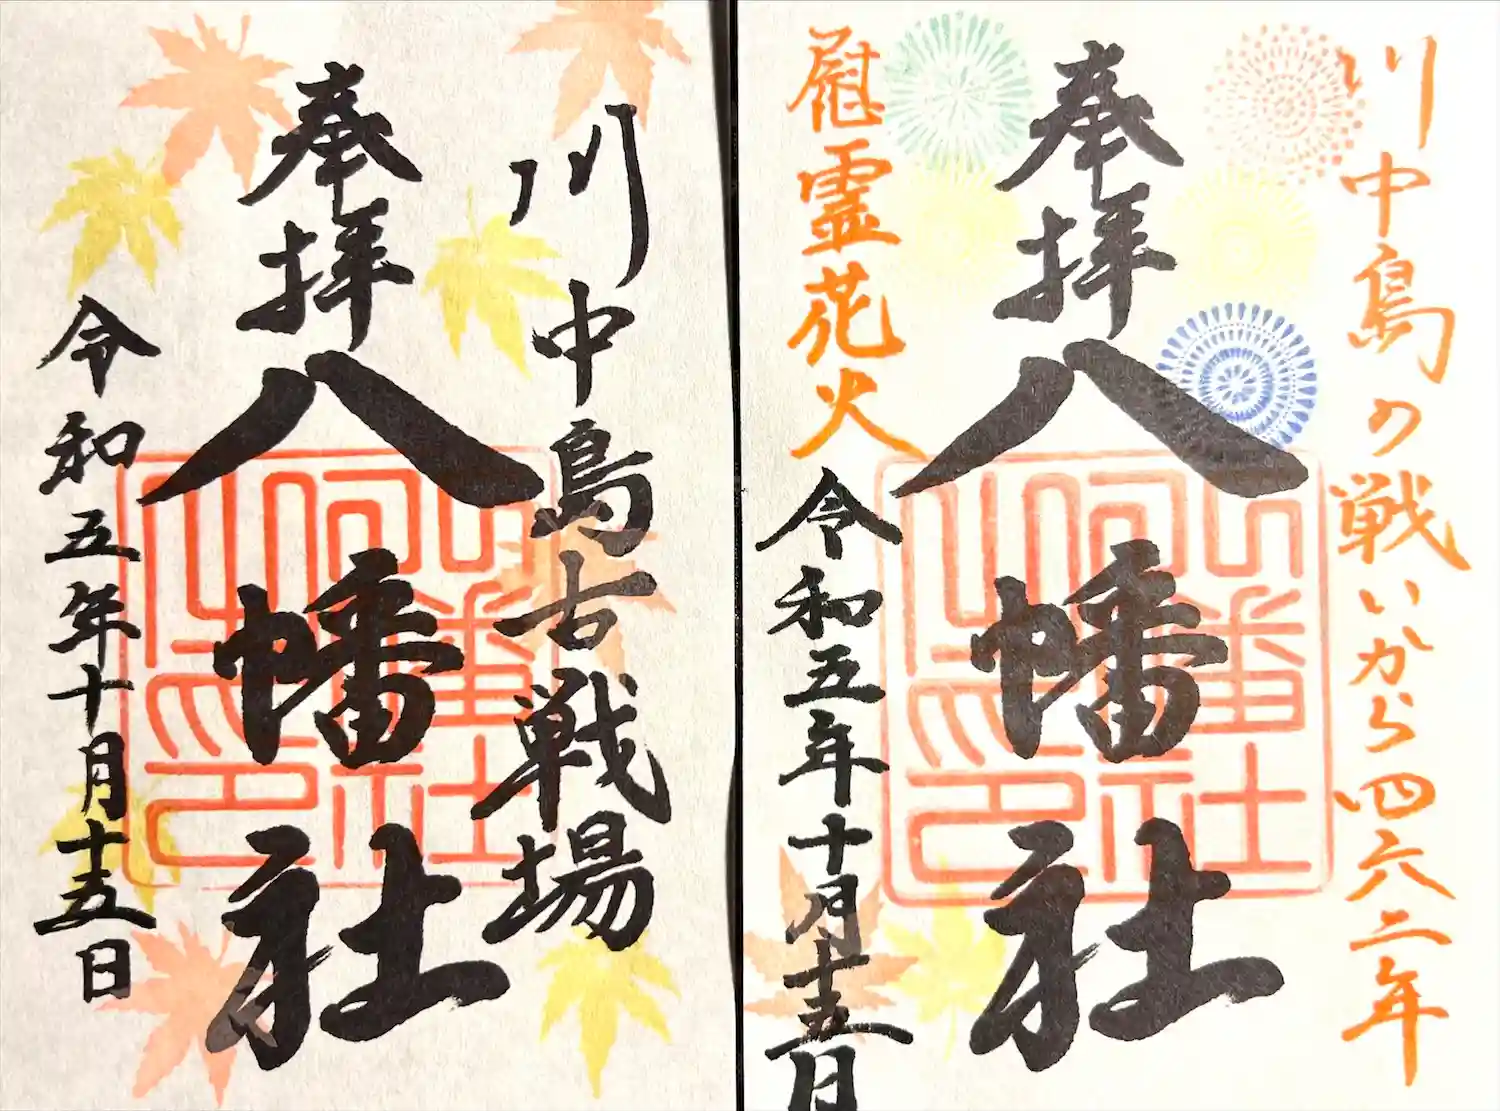 川中島の戦いから四六二年
奉拝
八幡社
慰霊花火
令和五年十月十五日
川中島古戦場
奉拝
八幡社
令和五年十月十五日